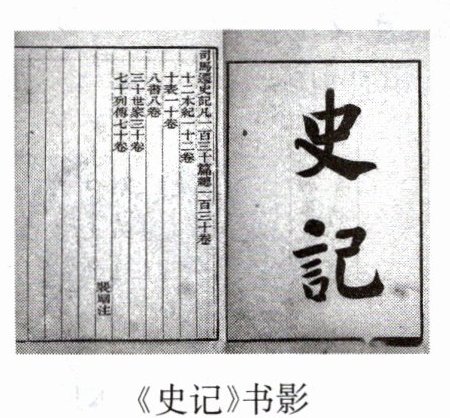 史記
司馬遷史記凡一百三十篇總一百三十卷
十二本紀一十二卷
十表一十卷
八書八卷
三十世家三十卷
七十列傳七十卷
裴駰注
《史记》书影